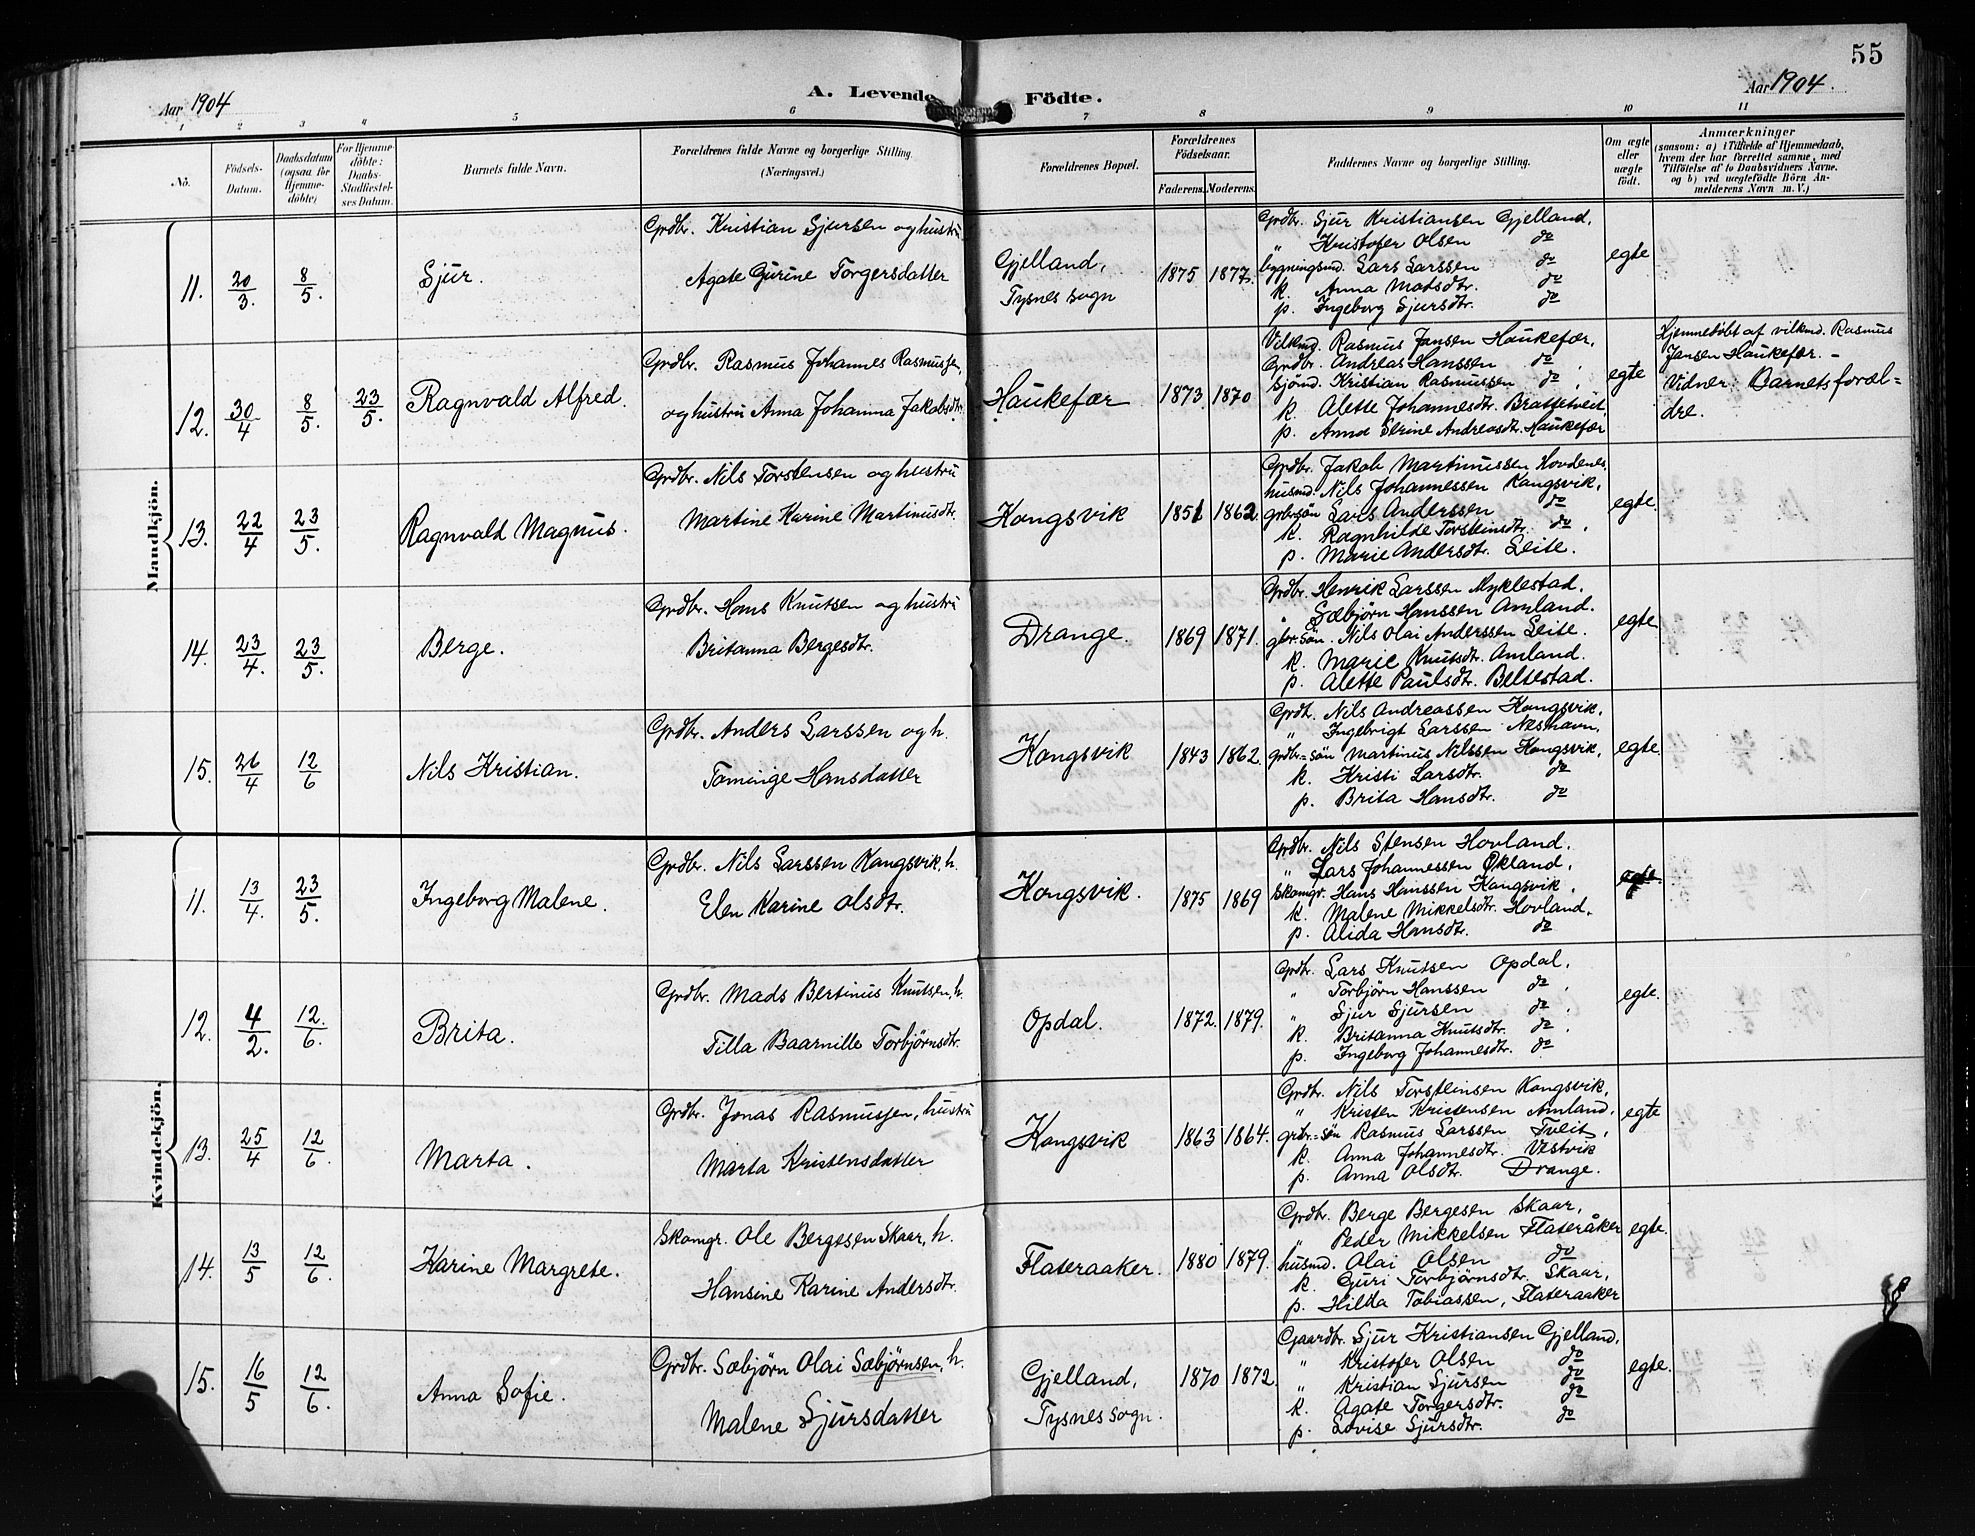 55
Aar 1904
A. Levende Födte.
Aar 1904.
1 2 3 4 5 6 7 8 9 10 11
No.
Födsels-Datum.
Daabsdatum (ogsaa for Hjemmedöbte)
For Hjemmedöbte: Daabs-Stadfæstelses Datum.
Barnets fulde Navn.
Forældrenes fulde Navne og borgerlige Stilling. (Næringsvei.)
Forældrenes Bopæl.
Forældrenes Födselsaar.
Faderens. Moderens.
Faddernes Navne og borgerlige Stilling.
Om ægte eller uægte födt.
Anmærkninger
(saasom: a) i Tilfælde af Hjemmedaab, hvem der har forrettet samme, med Tilföielse af to Daabsvidners Navne, og b) ved uægtefödte Börn Anmelderens Navn m. V.)
Mandkjön.
11. 20/3. 8/5. Sjur.
Grdbr. Kristian Sjursen og hustru
Agate Gurine Torgersdatter
Gjelland,
Tysnes sogn
1875 1877.
Grdbr. Sjur Kristiansen Gjelland,
" Kristofer Olsen do
bygningsmd. Lars Larssen do
k. Anna Madsdtr. do
p. Ingeborg Sjursdtr. do
egte
12. 30/4 8/5. 23/5. Ragnvald Alfred.
Grdbr. Rasmus Johannes Rasmussen,
og hustru Anna Johanna Jakobsdtr.
Haukefær 1873. 1870
Vilkmd. Rasmus Jansen Haukefær,
Grdbr. Andreas Hanssen do,
Sjömd. Kristian Rasmussen do,
k. Alette Johannesdtr. Brattetveit,
p. Anna Serine Andreasdtr. Haukefær
egte
Hjemmedöbt af vilkmd. Rasmus
Jansen Haukefær. -
Vidner: Barnets foræl=
dre.
13. 22/4 23/5. Ragnvald Magnus.
Grdbr. Nils Torstensen og hustru
Martine Karine Martinusdtr.
Kongsvik 1851 1862.
Grdbr. Jakob Martinussen Hovdenes,
husmd. Nils Johannessen Kongsvik,
grbrsön Lars Anderssen do
k. Ragnhilde Torsteinsdtr. do,
p. Marie Andersdtr. Leite.
egte.
14. 23/4. 23/5. Berge.
Grdbr. Hans Knutsen og hustru
Britanna Bergesdtr.
Drange. 1869 1871.
Grdbr. Henrik Larssen Myklestad.
" Sæbjørn Hanssen Amland.
gbr-sön. Nils Olai Anderssen Leite.
k. Marie Knutsdtr. Amland.
p. Alette Paulsdtr. Beltestad.
egte.
15. 26/4 12/6 Nils Kristian.
Grdbr. Anders Larssen og h.
Tominge Hansdatter
Kongsvik 1843 1862.
Grdb. Nils Andreassen Kongsvik,
" Ingebrigt Larssen Neshavn,
grdbr=sön Martinus Nilssen Kongsvik,
k. Kristi Larsdtr. do
p. Brita Hansdtr. do
egte.
Kvindekjön.
11. 13/4. 23/5. Ingeborg Malene.
Grdbr. Nils Larssen Kongsvik, h.
Elen Karine Olsdtr.
Kongsvik. 1875 1869
Grdbr. Nils Stensen Hovland.
" Lars Johannessen Økland,
Skomgr. Hans Hanssen Kongsvik,
k. Malene Mikkelsdtr. Hovland,
p. Alida Hansdtr. do
egte.
12. 4/2. 12./6. Brita.
Grdbr. Mads Bertinus Knutsen, h.
Tilla Baarnille Torbjørnsdtr.
Opdal. 1872. 1879.
Grdbr. Lars Knutsen Opdal,
" Torbjørn Hanssen do,
" Sjur Sjursen do,
k. Britanna Knutsdtr. do,
p. Ingeborg Johannesdtr. do
egte.
13. 25/4 12/6. Marta.
Grdbr. Jonas Rasmussen, hustru
Marta Kristensdatter
Kongsvik 1863 1864.
Grdbr. Nils Torsteinsen Kongsvik,
" Kristen Kristensen Amland,
grbr=sön Rasmus Larssen Tveit,
k. Anna Johannesdtr. Vestvik
p. Anna Olsdtr. Drange.
egte
14. 13/5 12/6. Karine Margrete.
Skomgr. Ole Bergesen Skaar, h.
Hansine Karine Andersdtr.
Flateraaker. 1880 1879.
Grdbr. Berge Bergesen Skaar,
" Peder Mikkelsen Flateråker
husmd. Olai Olsen do
k. Guri Torbjørnsdtr. Skaar,
p. Hilda Tobiassen, Flateraaker
egte.
15. 16/5 12/6. Anna Sofie.
Grdbr. Sæbjørn Olai Sæbjørnsen, h.
Malene Sjursdatter
Gjelland,
Tysnes sogn.
1870 1872.
Gaardbr. Sjur Kristiansen Gjelland,
" Kristofer Olsen do
" Kristian Sjursen do
k. Agate Torgersdtr. do
p. Lovise Sjursdtr. do
egte.